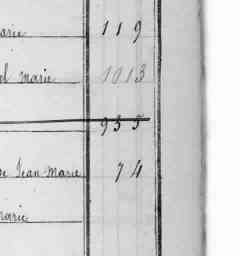 arie 119
el marie 1013
935
de Jean Marie 74
marie